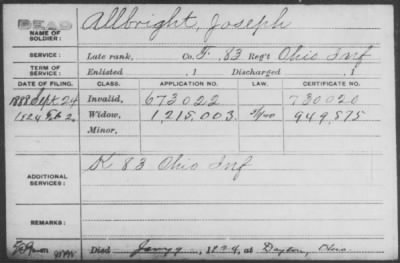 DEAD
NAME OF SOLDIER: Allbright, Joseph
SERVICE: Late rank, Co. F. 83 Reg't Ohio Inf
TERM OF SERVICE: Enlisted , 1 Discharged , 1
DATE OF FILING. CLASS. APPLICATION NO. LAW. CERTIFICATE NO.
1888 Sept. 24 Invalid, 673022 730020
Widow, 1,215,003 949,875
Minor,
ADDITIONAL SERVICES: K 83 Ohio Inf
REMARKS:
Died 189 , at Dayton, Ohio.